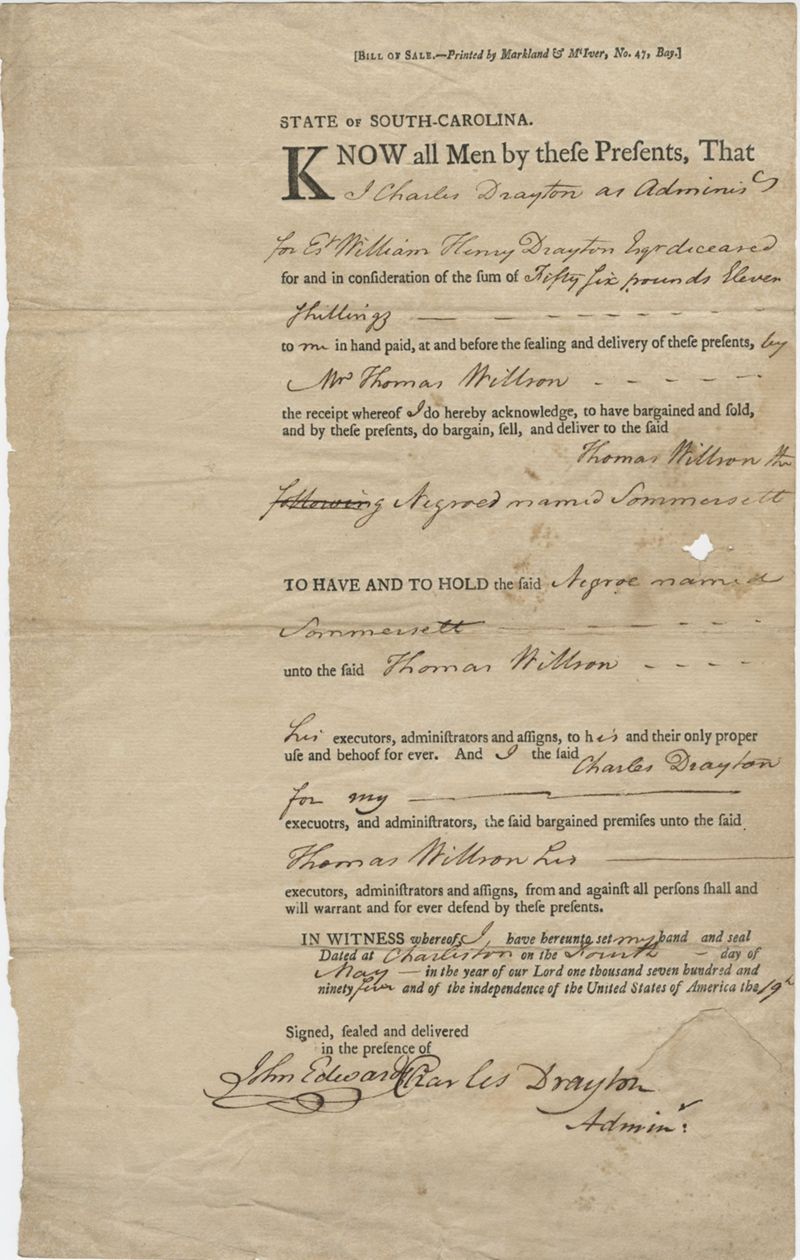 [BILL OF SALE.—Printed by Markland & McIver, No. 47, Bay.]
STATE OF SOUTH-CAROLINA.
KNOW all Men by theſe Preſents, That
I Charles Drayton as Adminisr
for Est William Henry Drayton Esqr diceased
for and in conſideration of the ſum of Fifty ſix pounds Eleven
ſhillings — — — — — — — —
to me in hand paid, at and before the ſealing and delivery of theſe preſents, by
Mr Thomas Willson - - - - -
the receipt whereof I do hereby acknowledge, to have bargained and ſold,
and by theſe preſents, do bargain, ſell, and deliver to the ſaid
Thomas Willson the
following Negroed named Sommersett
TO HAVE AND TO HOLD the ſaid Negroe named
Sommersett — — — — — — —
unto the ſaid Thomas Willson - - - -
his executors, adminiſtrators and aſſigns, to his and their only proper
uſe and behoof for ever. And I the ſaid
Charles Drayton
for my ———
execuotrs, and adminiſtrators, the ſaid bargained premiſes unto the ſaid
Thomas Willson his ———
executors, adminiſtrators and aſſigns, from and againſt all perſons ſhall and
will warrant and for ever defend by theſe preſents.
IN WITNESS whereof, I, have hereunto set my hand and seal
Dated at Charleston on the Fourth — day of
May — in the year of our Lord one thousand seven hundred and
ninety five and of the independence of the United States of America the 19th
Signed, ſealed and delivered
in the preſence of
John Edwards Charles Drayton
Adminr: